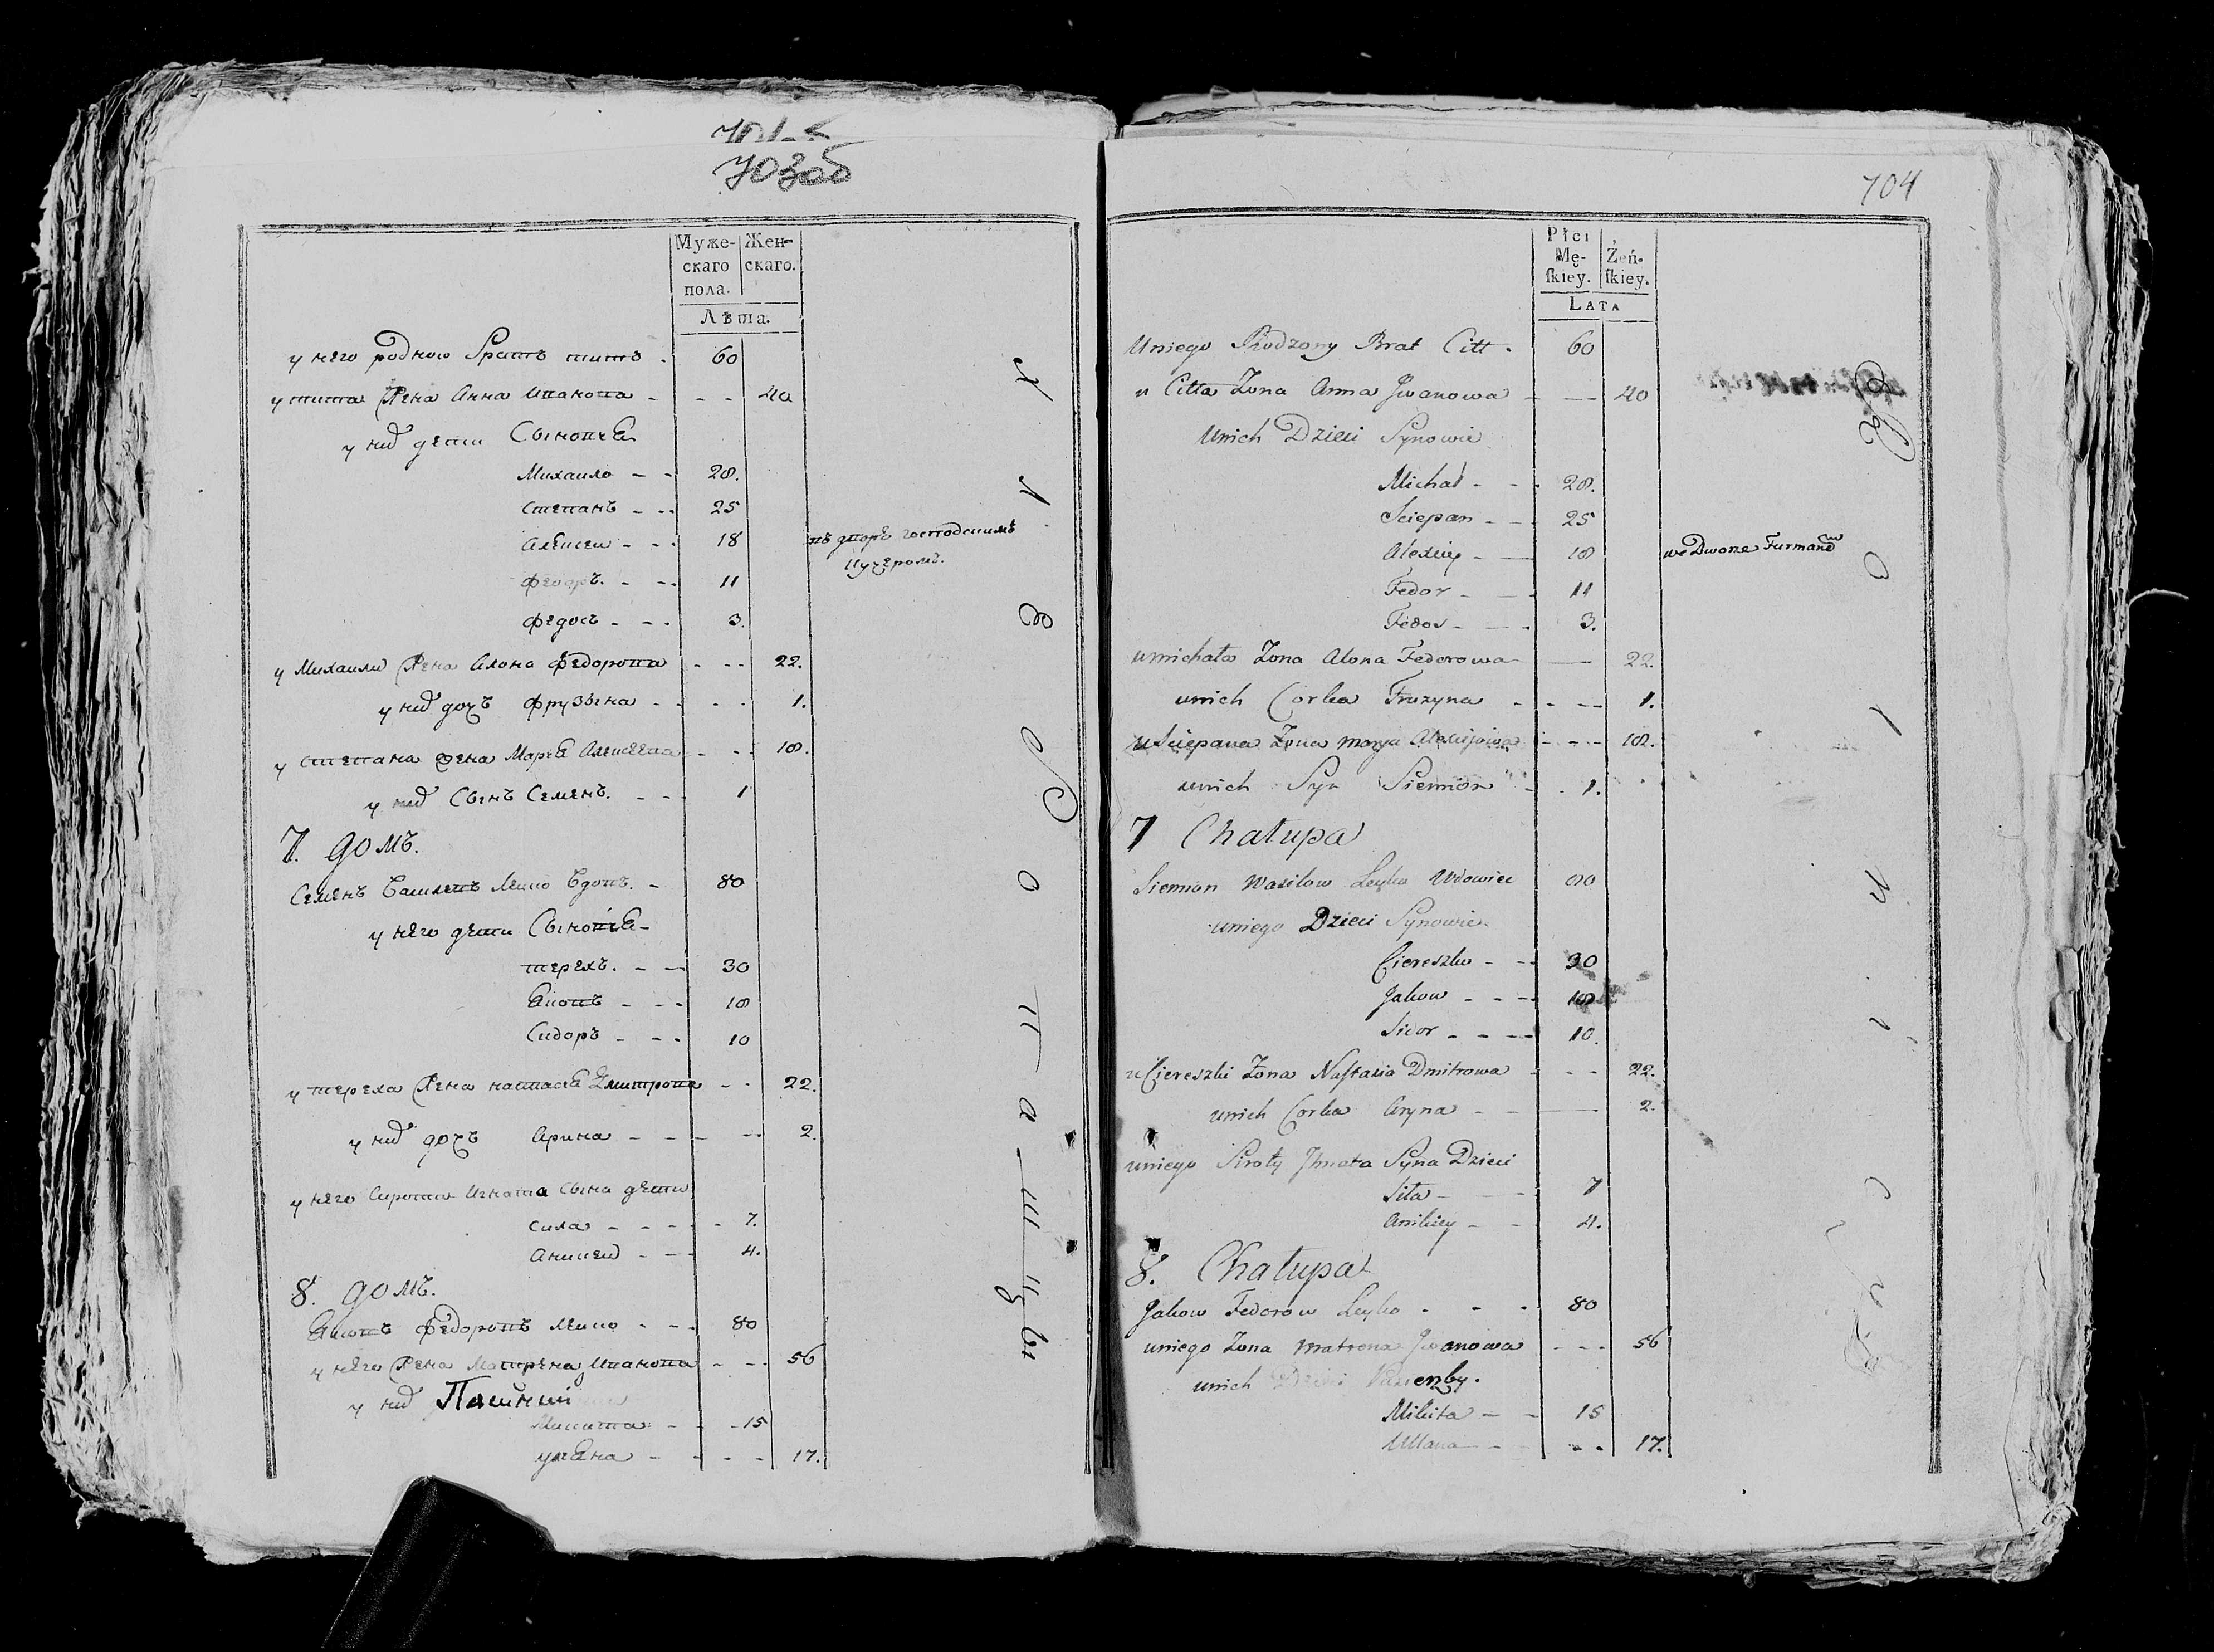 703об
Муже-
скаго
пола.
Жен-
скаго.
Лѣта.
у него родной братъ титъ 60
у тита жена Анна Иванова 40
у них дети Сыновьѣ
Михаило 28.
степанъ 25
Алексей 18 въ дворѣ господскимъ
кучеромъ.
федоръ. 11
федось 3.
у Михаили жена Алона федорова 22.
у них дочь фрузына 1.
у степана жена Марья Алексеева 18.
у них Сынъ Семенъ. 1
7. домъ.
Семенъ Василевъ Лейко вдовъ. 80
у него дети Сыновьѣ
терехъ. 30
Яковъ 18
Сидоръ 10
у тереха жена настася Дмитрова 22.
у них дочь Арина 2.
у него сироты Игната сына дети
сила 7.
Аникей 4.
8. домъ.
Яковъ федоровъ Лейко 80
у него жена Матрена Иванова 56
у них
Микита 15
ульяна 17.
704
Płci
Mę-
ſkiey.
Żeń-
ſkiey.
LATA
Uniego Rodzony Brat Citt. 60
u Citta Zona Anna Jwanowa 40
Unich Dzieci Synowie
Michał 28.
Sciepan 25
Alexiey 18 we Dworze Furmanem
Fedor 11
Fedos 3.
u michała Zona Alona Fedorowa 22.
unich Corka Fruzyna 1.
u Sciepana Zona marya Alexiejowa 18.
unich Syn Siemion 1.
7 Chałupa
Siemion Wasilow Leyko Wdowiec 80
uniego Dzieci Synowie
Ciereszko 30
Jakow 18
Sidor 10.
u Ciereszki Zona Nastasia Dmitrowa 22.
unich Corka Aryna 2.
uniego Siroty Jhnata Syna Dzieci
Siła 7
Anikiey 4.
8. Chałupa
Jakow Fedorow Leyko 80
uniego Zona matrona Jwanowa 56
unich Dzieci Pasierzby.
Mikita 15
Ullana 17.